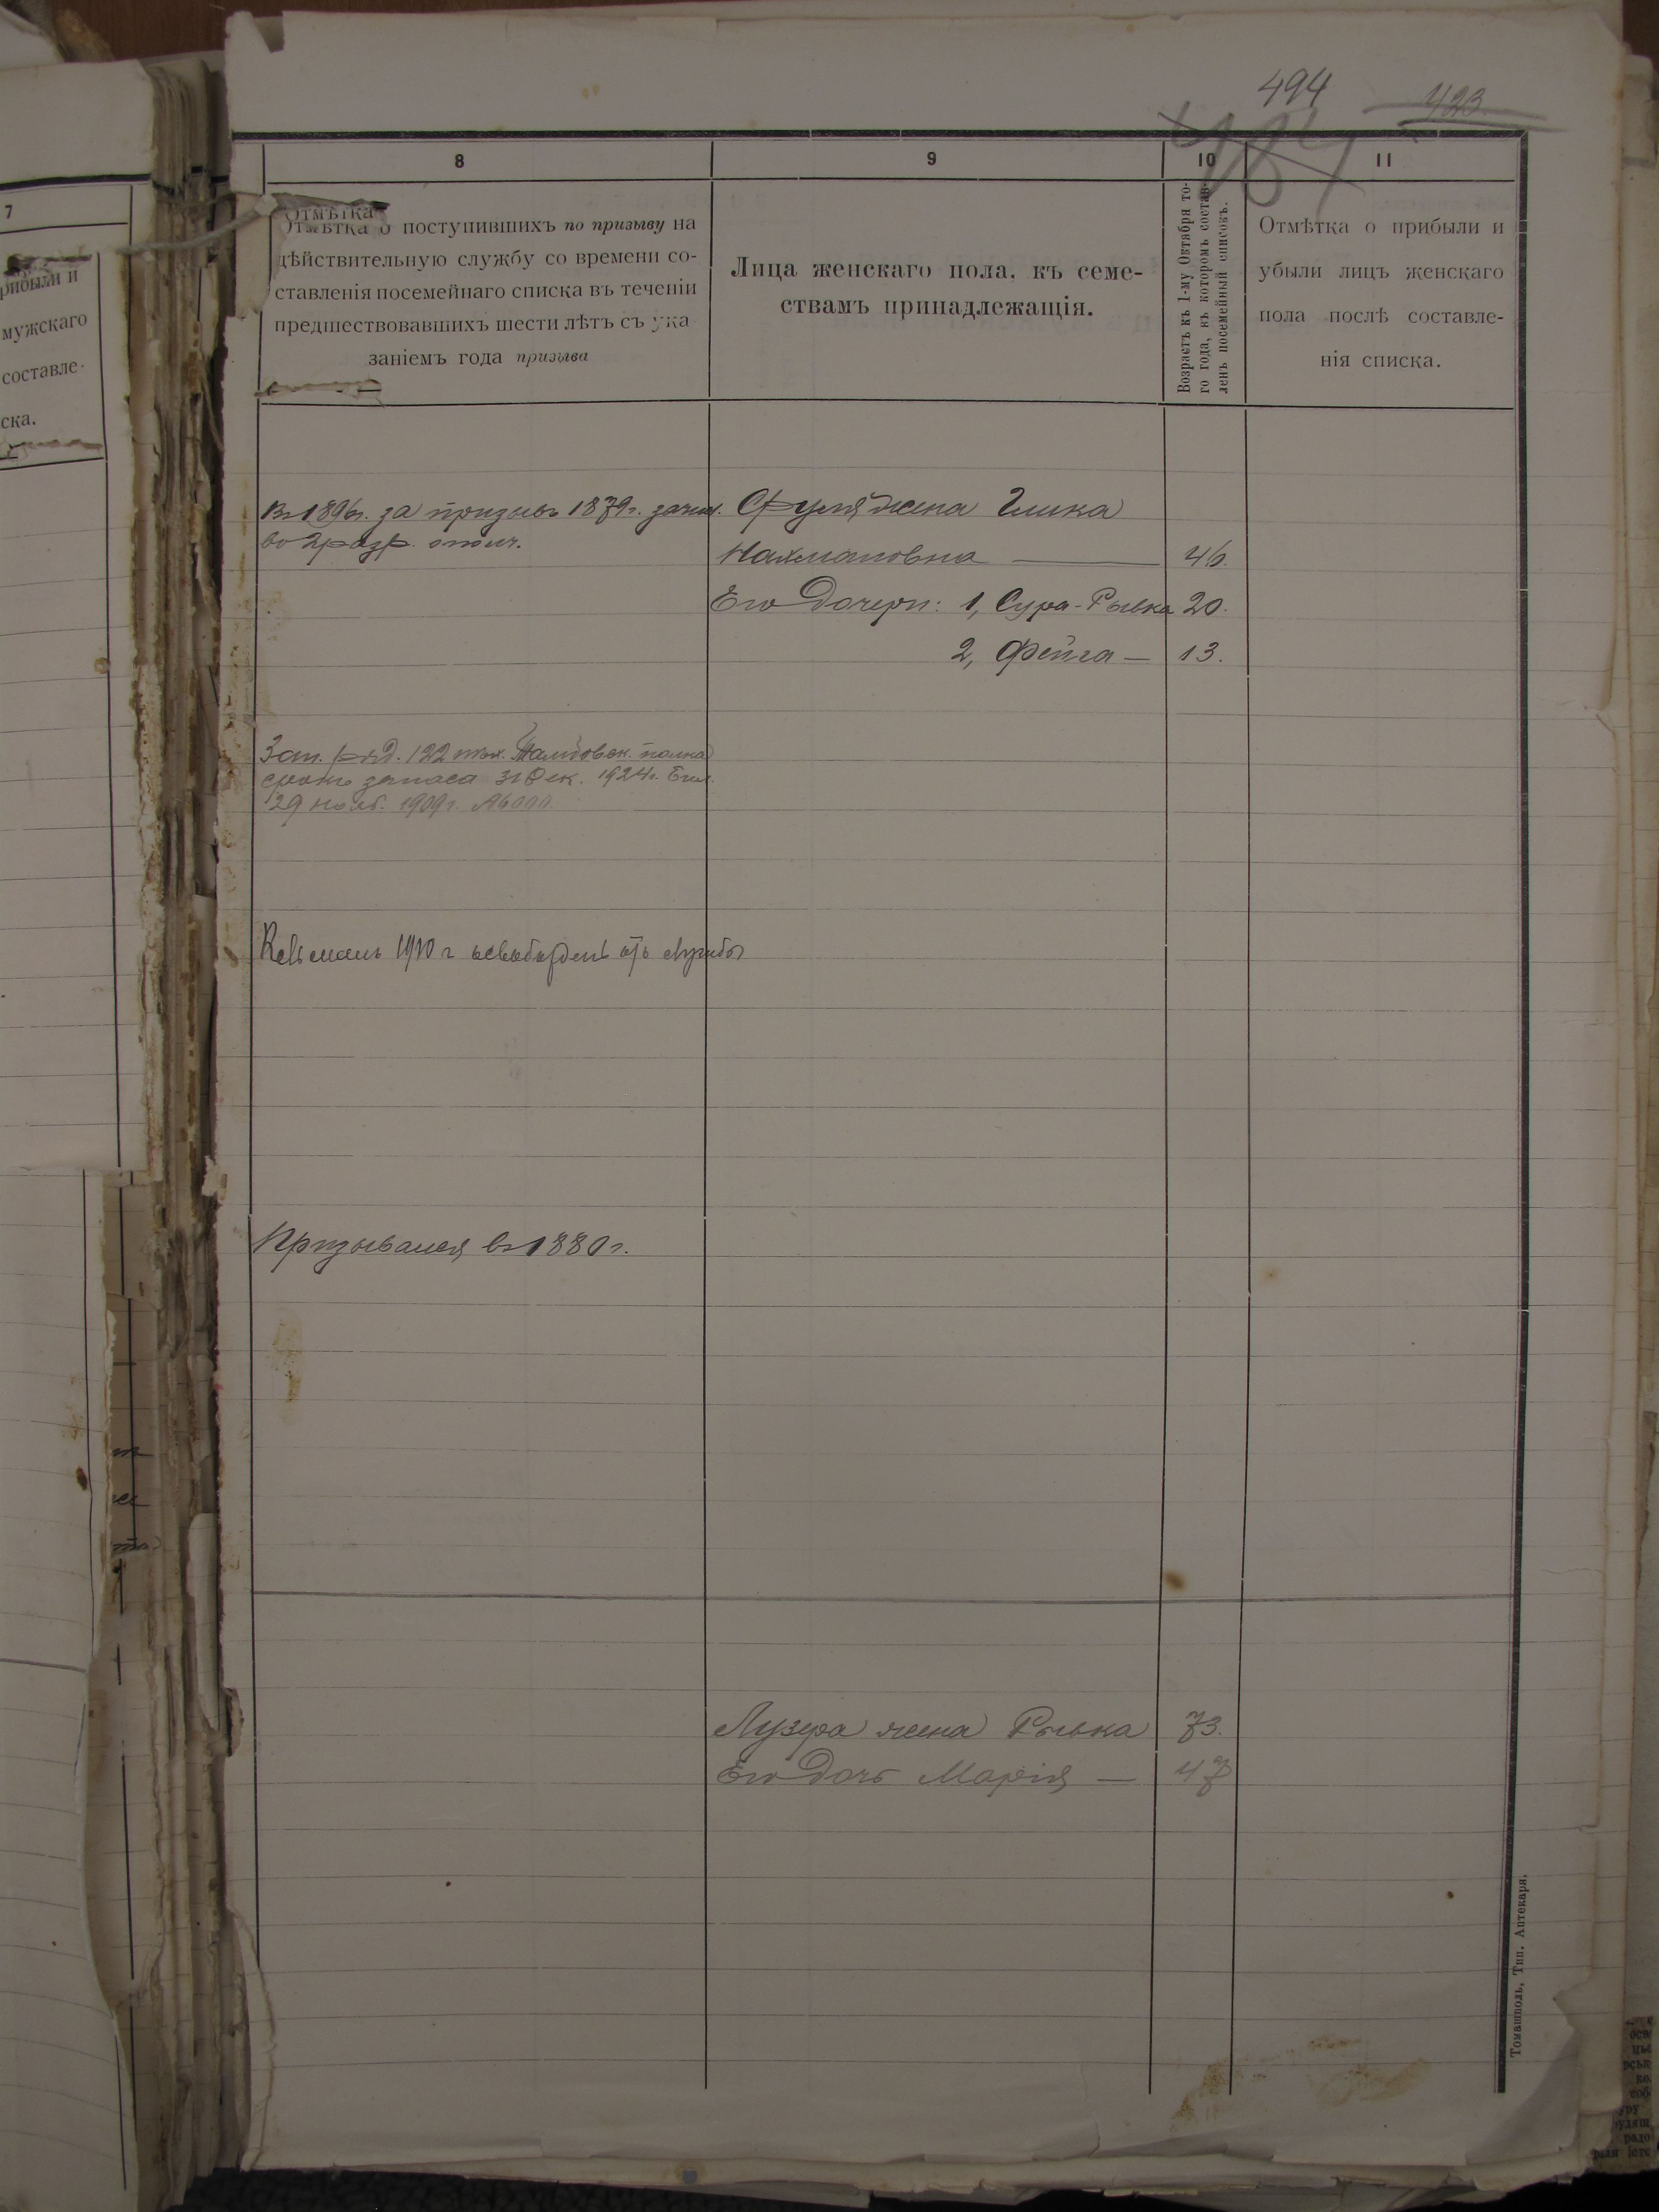 494
423
484
7
рибыли и
мужскаго
составле-
ска.
8
9
10
11
Отмѣтка
Отмѣтка о поступившихъ по призыву на
дѣйствительную службу со времени со-
ставленія посемейнаго списка въ теченіи
предшествовавшихъ шести лѣтъ съ ука
заніемъ года призыва
Лица женскаго пола, къ семе-
ствамъ принадлежащія.
Возрастъ къ 1-му Октября то-
го года, въ которомъ состав-
ленъ посемейный списокъ.
Отмѣтка о прибыли и
убыли лицъ женскаго
пола послѣ составле-
нія списка.
Въ 1896г. за призывъ 1879г. зачис.
во 2 разр. ополч.
Сруля жена Гликa
Нахмановна — 46.
Его дочери: 1, Сура-Рывка 20.
2, Фейга — 13.
Зап. ряд. 122 пѣх. Тамбовск. полка
срокъ запаса 31 Дек. 1924г. Бил.
29 нояб. 1909г.
1910 г освобожденъ отъ службы
Призывался въ 1880г.
Лузера жена Рывка 73.
Его дочь Марія — 47
Томашполь, Тип. Аптекаря.